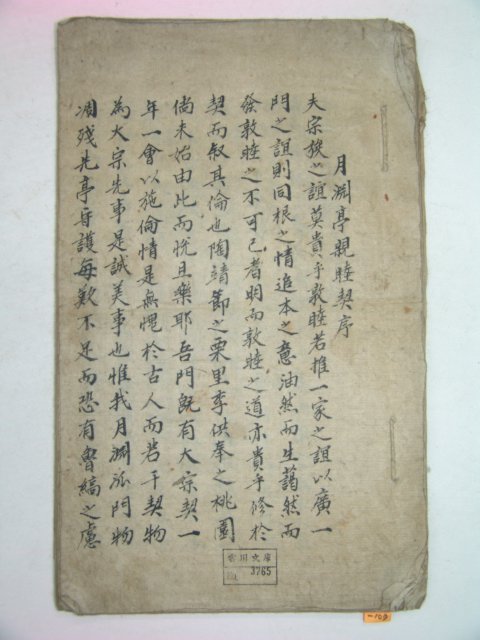 月淵亭親睦契序
夫宗族之誼莫貴乎敦睦若推一家之誼以廣一
門之誼則同根之情追本之意油然而生藹然而
發敦睦之不可已者明而敦睦之道亦貴乎修於
契而叙其倫也陶靖節之栗里李供奉之桃園
倘未始由此而怳且樂耶吾門旣有大宗契一
年一會以施倫情是無愧於古人而若干契物
為大宗先事是誠美事也惟我月淵派門物
凋殘先亭守護每歎不足而恐有魯縞之慮
文庫
3765